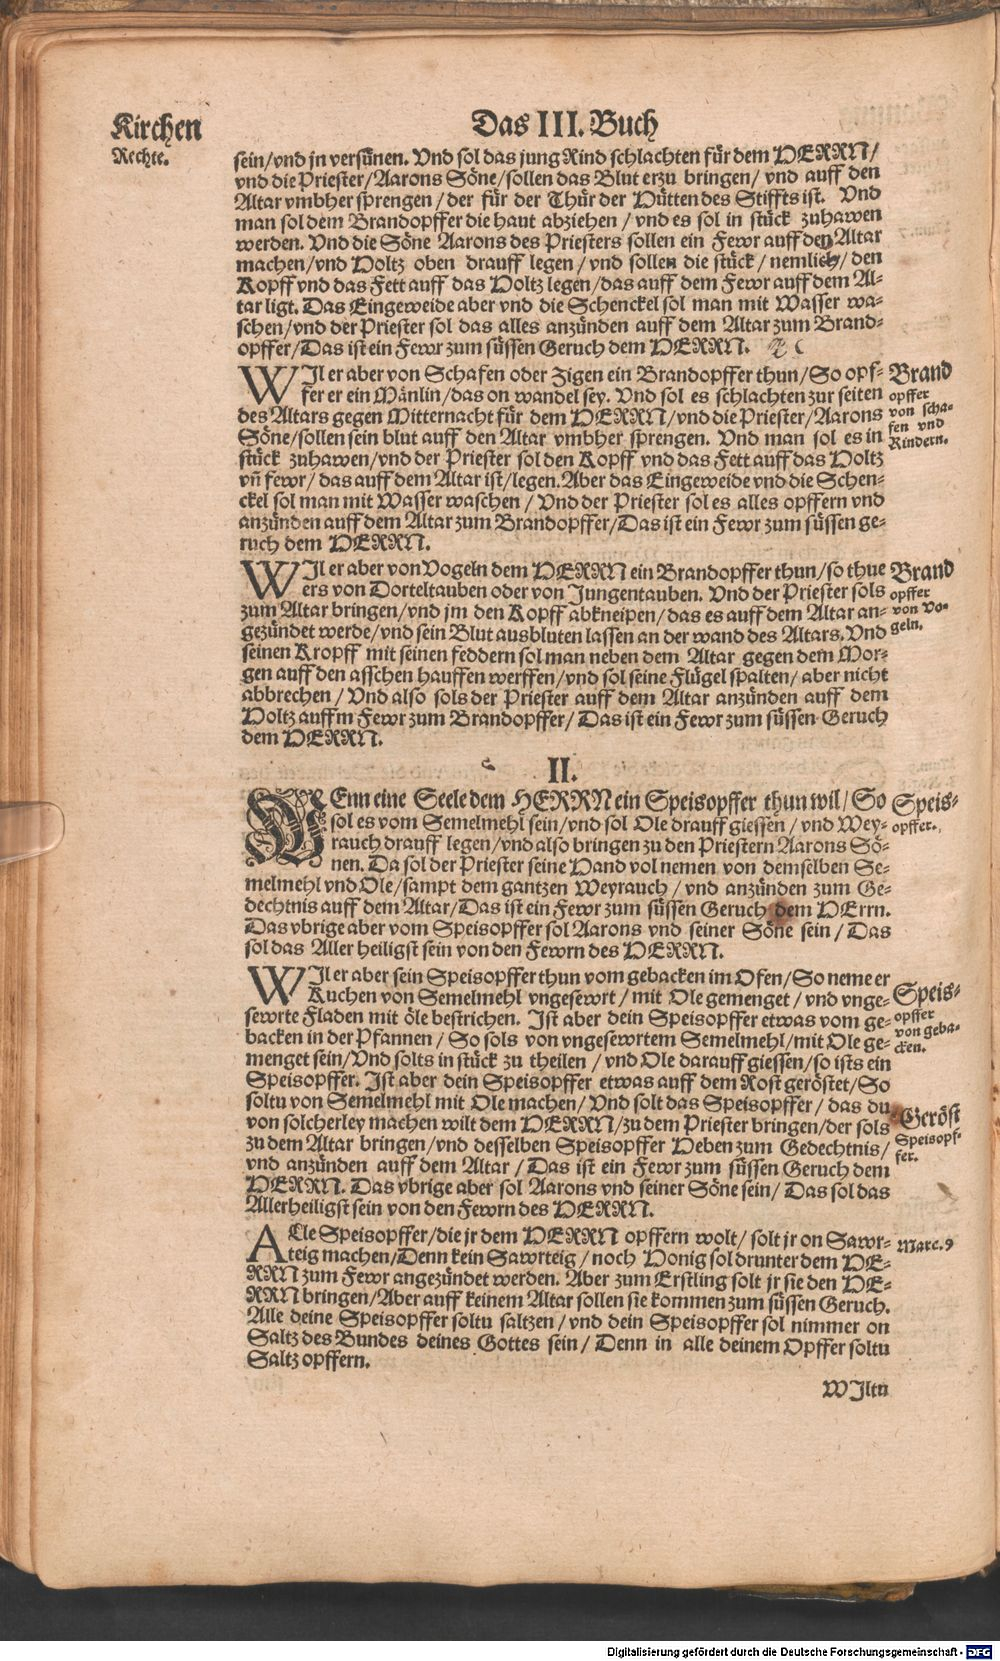 Kirchen
Rechte.
Das III. Buch
sein/vnd jn versünen. Vnd sol das jung Rind schlachten für dem HERRN/
vnd die Priester/Aarons Söne/sollen das Blut erzu bringen/ vnd auff den
Altar vmbher sprengen/der für der Thür der Hütten des Stiffts ist. Vnd
man sol dem Brandopffer die haut abziehen/vnd es sol in stück zuhawen
werden. Vnd die Söne Aarons des Priesters sollen ein Fewr auff den Altar
machen/vnd Holtz oben drauff legen/vnd sollen die stück/nemlich/den
Kopff vnd das Fett auff das Holtz legen/das auff dem Fewr auff dem Al-
tar ligt. Das Eingeweide aber vnd die Schenckel sol man mit Wasser wa-
schen/vnd der Priester sol das alles anzünden auff dem Altar zum Brand-
opffer/Das ist ein Fewr zum süssen Geruch dem HERRN.
WIl er aber von Schafen oder Zigen ein Brandopffer thun/So opf-
fer er ein Mänlin/das on wandel sey. Vnd sol es schlachten zur seiten
des Altars gegen Mitternacht für dem HERRN/vnd die Priester/Aarons
Söne/sollen sein blut auff den Altar vmbher sprengen. Vnd man sol es in
stück zuhawen/vnd der Priester sol den Kopff vnd das Fett auff das Holtz
vñ fewr/das auff dem Altar ist/legen. Aber das Eingeweide vnd die Schen-
ckel sol man mit Wasser waschen/Vnd der Priester sol es alles opffern vnd
anzünden auff dem Altar zum Brandopffer/Das ist ein Fewr zum süssen ge-
ruch dem HERRN.
Brand
opffer
von scha-
fen vnd
Rindern.
WIl er aber von Vogeln dem HERRN ein Brandopffer thun/so thue
ers von Dorteltauben oder von Jungentauben. Vnd der Priester sols
zum Altar bringen/vnd jm den Kopff abkneipen/das es auff dem Altar an-
gezündet werde/vnd sein Blut ausbluten lassen an der wand des Altars. Vnd
seinen Kropff mit seinen feddern sol man neben dem Altar gegen dem Mor-
gen auff den asschen hauffen werffen/vnd sol seine Flügel spalten/aber nicht
abbrechen/Vnd also sols der Priester auff dem Altar anzünden auff dem
Holtz auffm Fewr zum Brandopffer/Das ist ein Fewr zum süssen Geruch
dem HERRN.
Brand
opffer
von Vo-
geln.
II.
WEnn eine Seele dem HERRN ein Speisopffer thun wil/So
sol es vom Semelmehl sein/vnd sol Ole drauff giessen/vnd Wey-
rauch drauff legen/vnd also bringen zu den Priestern Aarons Sö-
nen. Da sol der Priester seine Hand vol nemen von demselben Se-
melmehl vnd Ole/sampt dem gantzen Weyrauch/vnd anzünden zum Ge-
dechtnis auff dem Altar/Das ist ein Fewr zum süssen Geruch dem HErrn.
Das vbrige aber vom Speisopffer sol Aarons vnd seiner Söne sein/Das
sol das Aller heiligst sein von den Fewrn des HERRN.
Speis-
opffer.
WIl er aber sein Speisopffer thun vom gebacken im Ofen/So neme er
Kuchen von Semelmehl vngesewrt/mit Ole gemenget/vnd vnge-
sewrte Fladen mit öle bestrichen. Ist aber dein Speisopffer etwas vom ge-
backen in der Pfannen/So sols von vngesewrtem Semelmehl/mit Ole ge-
menget sein/Vnd solts in stück zu theilen/vnd Ole darauff giessen/so ists ein
Speisopffer. Ist aber dein Speisopffer etwas auff dem Rost geröstet/So
soltu von Semelmehl mit Ole machen/Vnd solt das Speisopffer/das du
von solcherley machen wilt dem HERRN/zu dem Priester bringen/der sols
zu dem Altar bringen/vnd desselben Speisopffer Heben zum Gedechtnis/
vnd anzünden auff dem Altar/Das ist ein Fewr zum süssen Geruch dem
HERRN. Das vbrige aber sol Aarons vnd seiner Söne sein/Das sol das
Allerheiligst sein von den Fewrn des HERRN.
Speis-
opffer
von geba-
cken.
Geröst
Speisopf-
fer.
ALle Speisopffer/die jr dem HERRN opffern wolt/solt jr on Sawr-
teig machen/Denn kein Sawrteig/noch Honig sol drunter dem HE-
RRN zum Fewr angezündet werden. Aber zum Erstling solt jr sie den HE-
RRN bringen/Aber auff keinem Altar sollen sie kommen zum süssen Geruch.
Alle deine Speisopffer soltu saltzen/vnd dein Speisopffer sol nimmer on
Saltz des Bundes deines Gottes sein/Denn in alle deinem Opffer soltu
Saltz opffern.
Marc. 9
WIltu
Digitalisierung gefördert durch die Deutsche Forschungsgemeinschaft - DFG